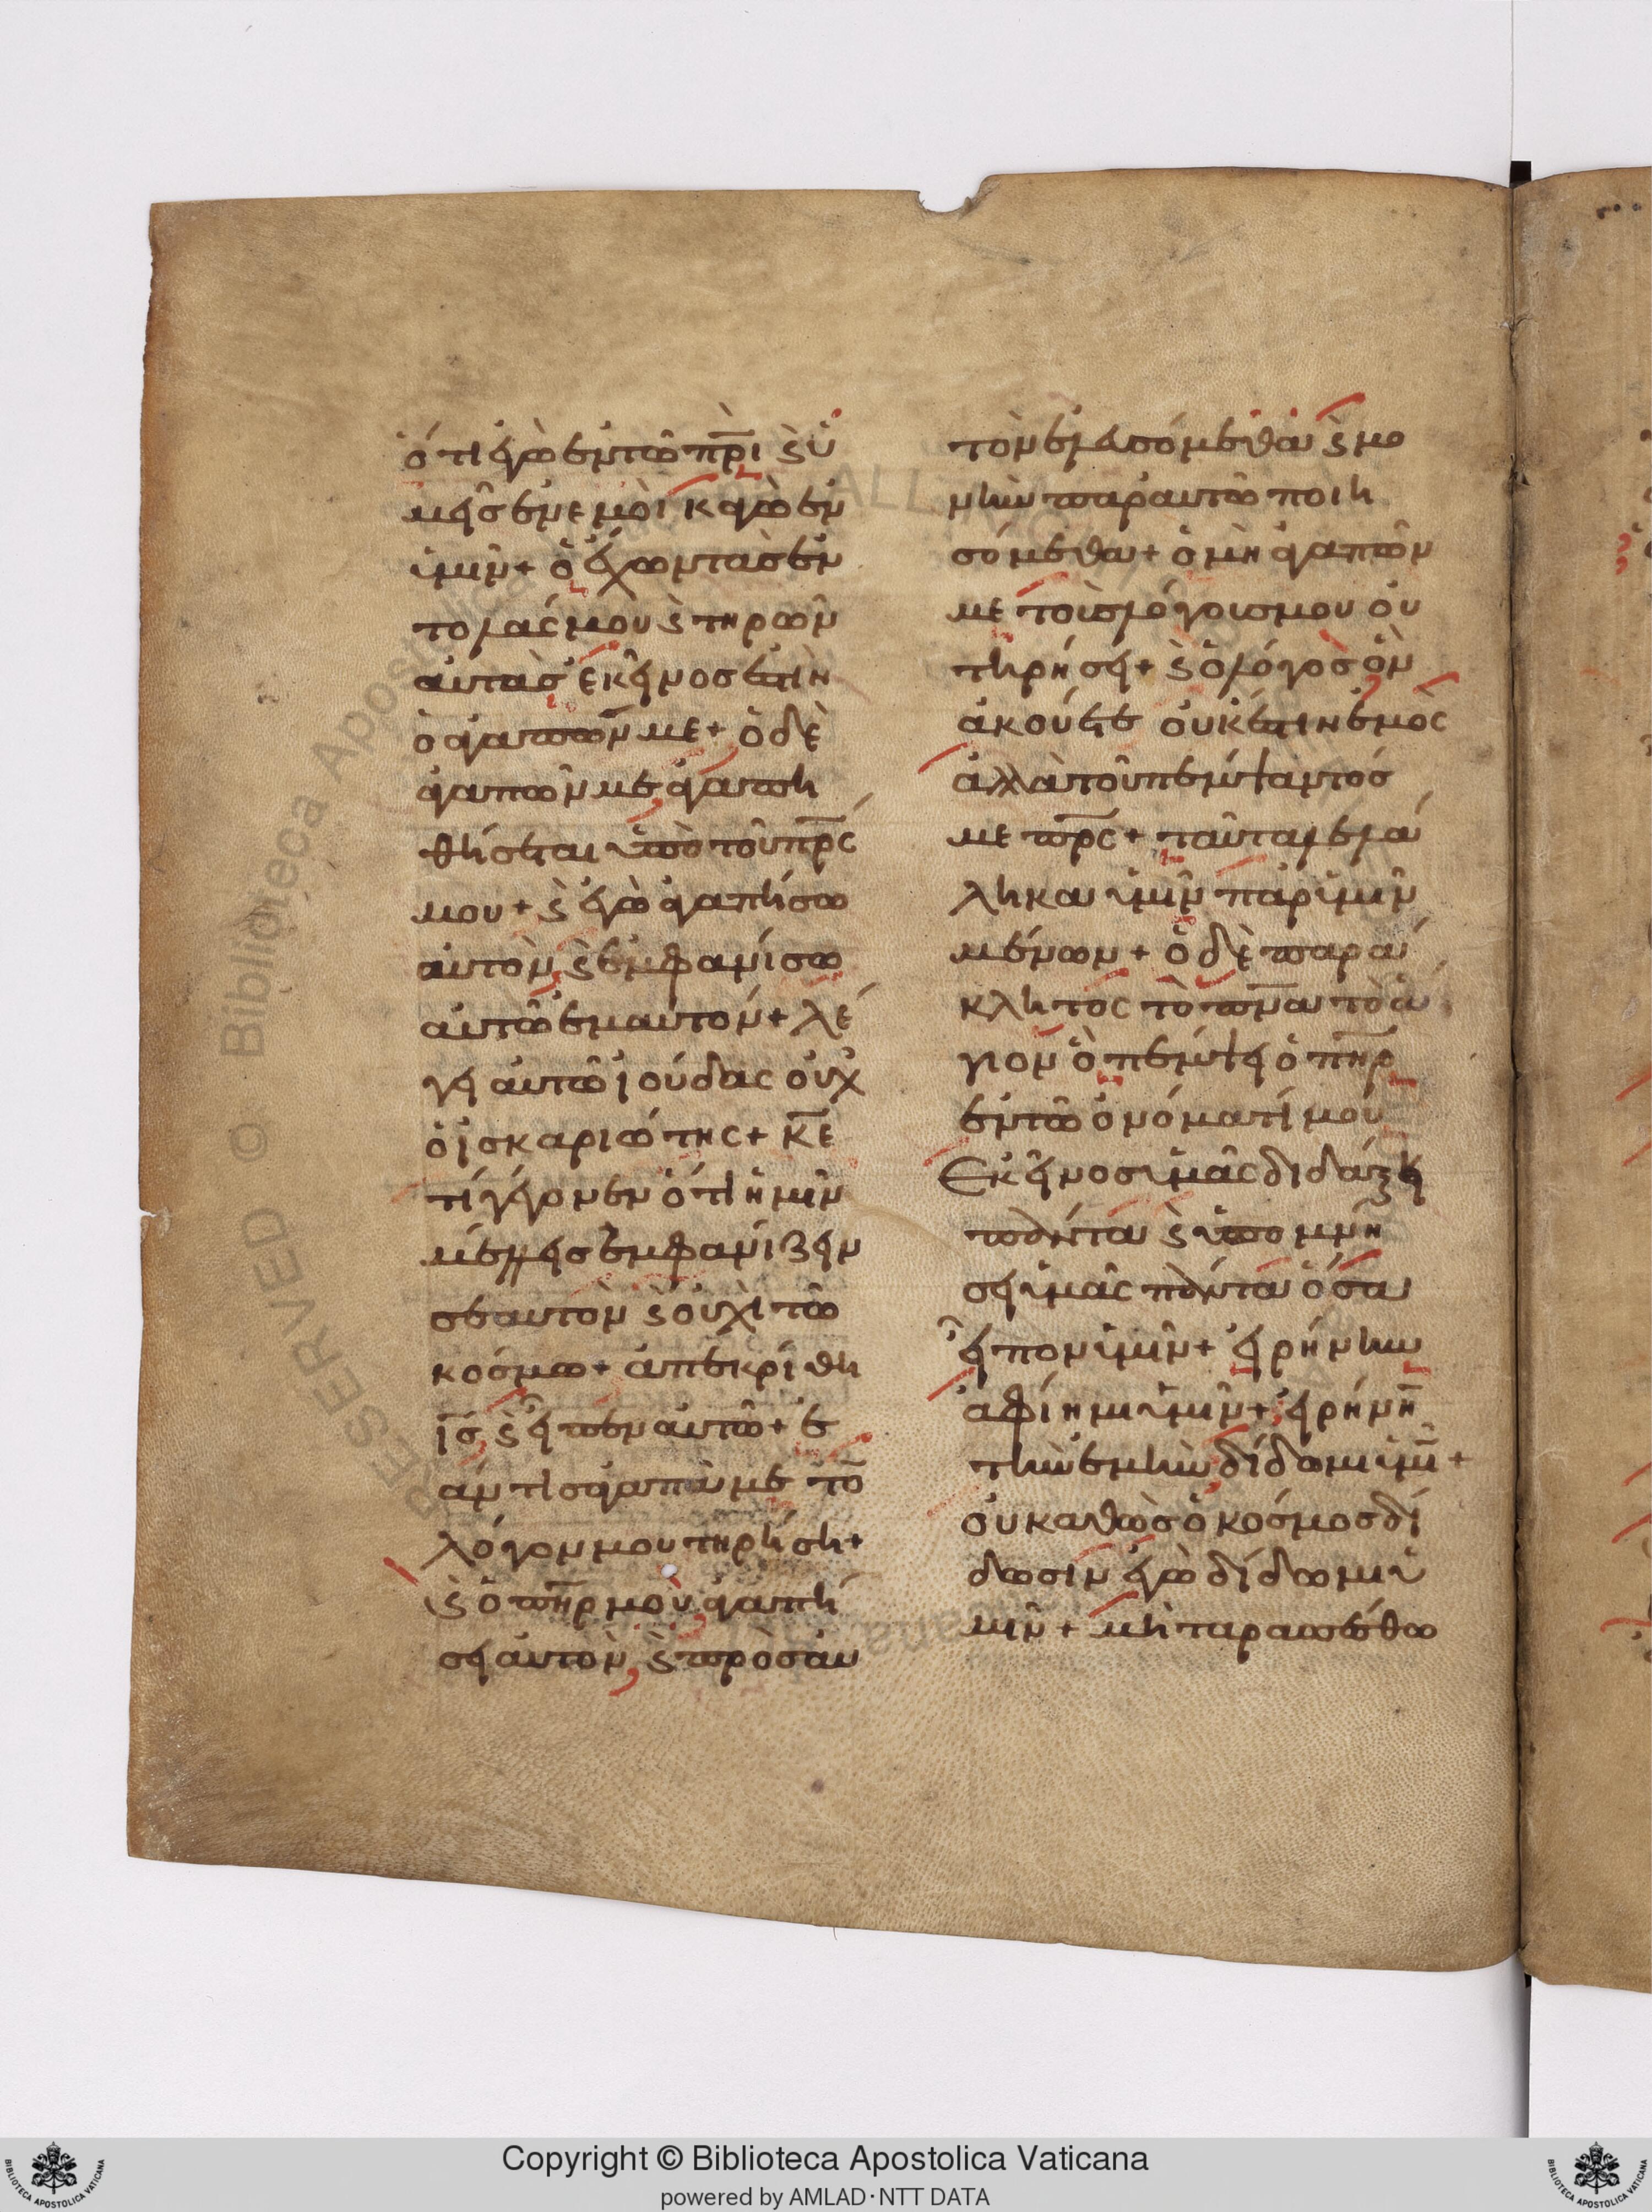 ὅτι ἐγὼ ἐν τῶ π̅ρ̅ι ϗ ὑ
μεῖσ ἐν ἐμοὶ κἀγὼ ἐν
ὑμῖν + ὁ ἔχων τὰσ ἐν
τολάς μου ϗ τηρῶν
αὐτὰσ ἐκεῖνοσ ἐστὶν
ὁ ἀγαπῶν με + ὁ δὲ
ἀγαπῶν με ἀγαπη
θήσεται ὑπὸ τοῦ π̅ρ̅ς
μου + ϗ ἐγὼ ἀγαπήσω
αὐτὸν ϗ ἐμφανίσω
αὐτῶ ἐμαυτόν + λέ
γει αὐτῶ ἰούδας οὐχ
ὁ ἰσκαριώτης + κ̅ε
τί γέγονεν ὅτι ἡμῖν
μέλλεισ ἐμφανίζειν
σεαυτὸν ϗ οὐχὶ τῶ
κόσμω + ἀπεκρίθη
ι̅σ ϗ εἶπεν αὐτῶ + ἐ
άν τισ ἀγαπᾶ με τὸ
λόγον μου τηρήση +
ϗ ὁ π̅η̅ρ μοὺ ἀγαπή
σει αὐτὸν ϗ πρὸσ αυ
τὸν ἐλευσόμεθα ϗ μο
νὴν παρ αυτῶ ποιη
σόμεθα + ὁ μὴ ἀγαπῶν
με τοὺσ λόγουσ μου οὐ
τηρήσει + ϗ ὁ λόγοσ ὃν
ἀκούετε οὐκ ἔστιν ἐμὸς
ἀλλὰ τοῦ πέμψαντόσ
με π̅ρ̅ς + ταῦτα λελά
ληκα ὑμῖν παρ ὑμῖν
μένων + ὁ δὲ παρά
κλητος τὸ π̅ν̅α τὸ ἅ
γιον ὃ πέμψει ὁ π̅η̅ρ
ἐν τῶ ὀνόματί μου
Ἐκεῖνοσ ὑμᾶς διδάξει
πάντα ϗ ὑπομνή
σει ὑμᾶς πάντα ὅσα
εἶπον ὑμῖν + εἰρήνην
ἀφίημι ὑμῖν + εἰρήνη
τὴν ἐμὴν δίδωμι ὑμῖ +
οὐ καθὼσ ὁ κόσμοσ δί
δωσιν ἐγὼ δίδωμι ὑ
μῖν + μὴ ταρασσέσθω
Copyright © Biblioteca Apostolica Vaticana
powered by AMLAD·NTT DATA